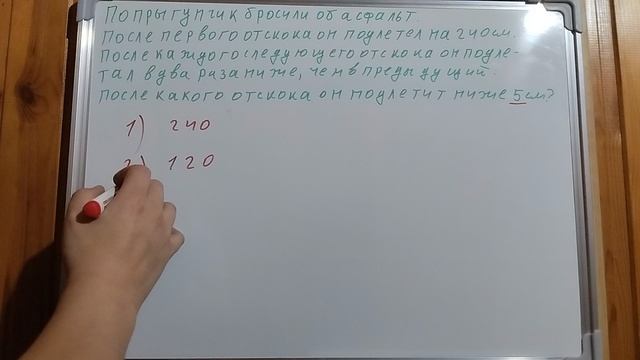 Попрыгунчик бросили об асфальт.
После первого отскока он подлетел на 240 см.
После каждого следующего отскока он подле-
тал в два раза ниже, чем в предыдущий.
После какого отскока он подлетит ниже 5 см?
1) 240
2) 120